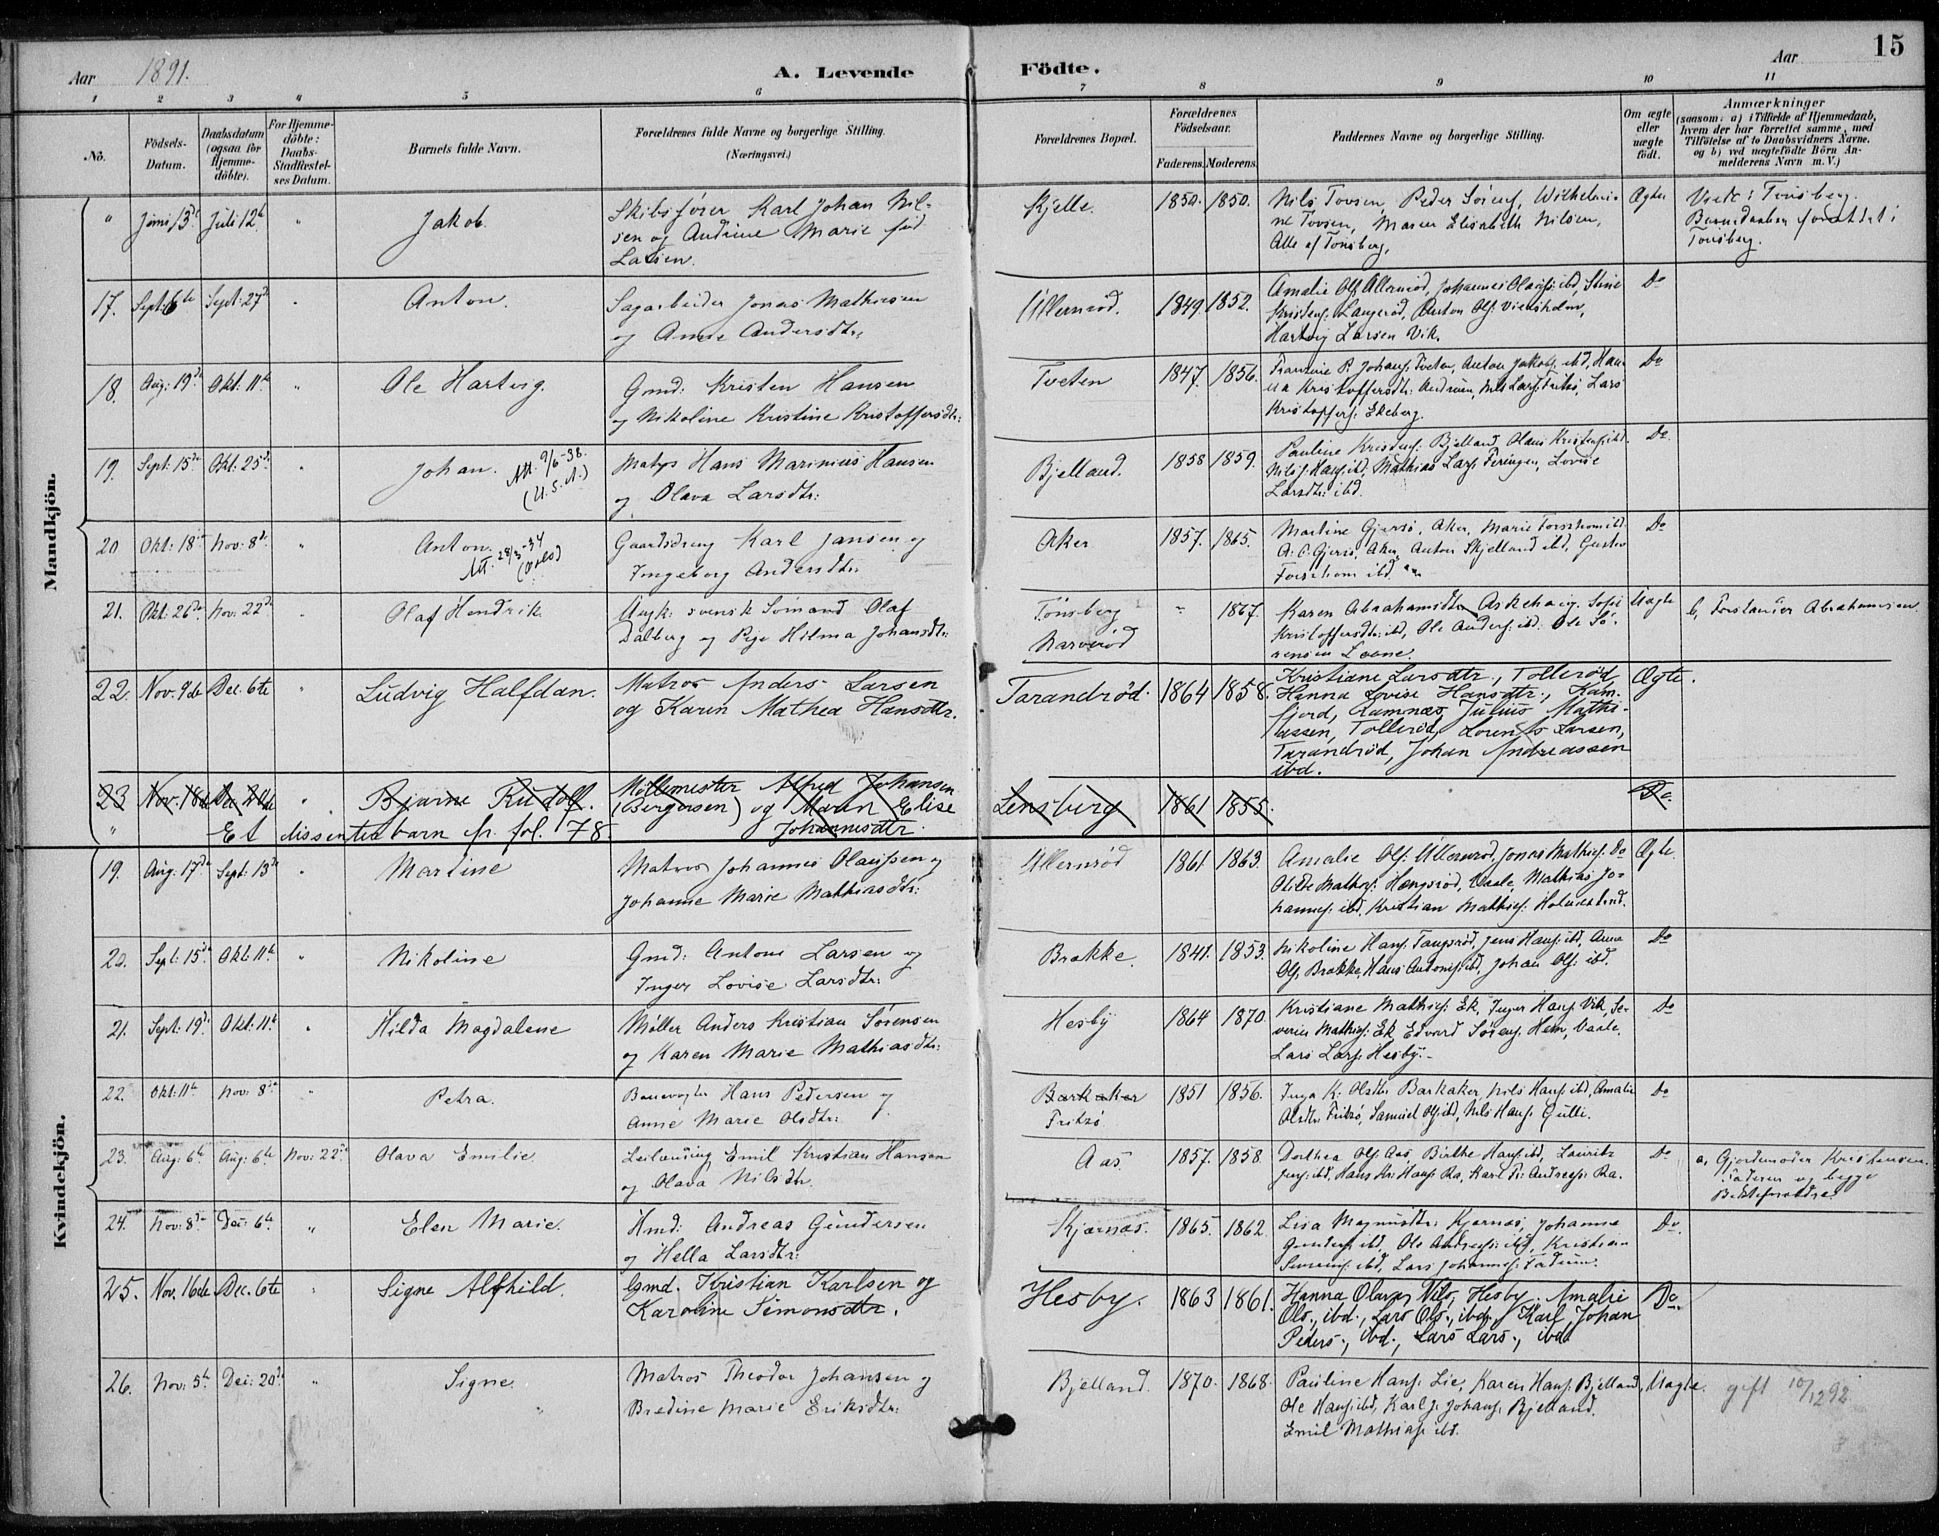 15
Aar 1891.
A. Levende Födte.
Aar
1 2 3 4 5 6 7 8 9 10 11
No.
Födsels-Datum.
Daabsdatum (ogsaa for Hjemme-döbte).
For Hjemme-döbte: Daabs-Stadfæstel-ses Datum.
Barnets fulde Navn.
Forældrenes fulde Navne og borgerlige Stilling. (Næringsvei.)
Forældrenes Bopæl.
Forældrenes Födselsaar.
Faderens. Moderens.
Faddernes Navne og borgerlige Stilling.
Om ægte eller uægte födt.
Anmærkninger
(saasom: a) i Tilfælde af Hjemmedaab,
hvem der har forrettet samme, med
Tilföielse af to Daabsvidners Navne,
og b) ved uægtefödte Börn An-
melderens Navn m. V.)
Mandkjön.
" Juni 13de Juli 12te " Jakob.
Skibsfører Karl Johan Nil-
sen og Andrine Marie fød
Larsen.
Kjelle. 1850. 1850.
Nils Tovsen, Peder Sörens, Wilhelmi-
ne Tovsen, Maren Elisabeth Nilsen,
Alle af Tönsberg,
Ægte
Viede i Tönsberg.
Barnedaaben forrettet i
Tönsberg.
17. Sept: 6te Sept: 27de " Anton.
Sagarbeider Jonas Mathisen
og Anne Andersdtr:
Ullernrød. 1849. 1852.
Amalie Ols Ullernrød, Johannes Olaufs: ibd, Stine
Kristens: Langerød, Anton Ols: Vieksholm,
Hartvig Larsen Vik.
Do
18. Aug: 19de Okt: 11te " Ole Hartvig.
Gmd: Kristen Hansen
og Nikoline Kristine Kristoffersdtr:
Tveten 1847. 1856.
Do
Kristoffers: Ekeberg.
19. Sept: 15de Okt: 25de " Johan. Att. 9/6-38. (U.S.A.)
Matros Hans Marinius Hansen
og Olava Larsdtr:
Bjelland. 1858 1859.
Pauline Kristens: Bjelland Olaus Kristens: ibd.
Nils J. Hans: ibd, Mathias Lars: Feringen, Lovise
Larsdtr: ibd.
Do
20 Okt: 18de Nov: 8de " Anton. Att. 28/3-34 (Oslo)
Gaardsdreng Karl Jansen og
Ingeborg Andersdtr:
Aker. 1857. 1865.
Martine Gjersö, Aker, Marie Forsthom ibd.
A. O. Gjersö, Aker, Anton Skjelland ibd, Gustav
Forsthom ibd.
Do
21. Okt: 26de Nov: 22de " Olaf Hendrik.
Ungk: svensk Sömand Olaf
Dalberg og Pige Hilma Johansdtr:
Tönsberg
Narverød
" 1867.
Karen Abrahamsdtr Askehaug. Sofie
Kristoffersdtr: ibd, Ole Anders: ibd. Ole Sö-
rensen Loone.
Uægte
b, Forstander Abrahamsen
22. Nov. 9de Dec. 6te " Ludvig Halfdan.
Matros Anders Larsen
og Karen Mathea Hansdtr.
Tarandrød. 1864 1858.
Kristiane Larsdtr., Tollerød,
Hanna Lovise Hansdtr., Kam-
fjord, Ramnæs, Julius Mathi-
assen, Tollerød, Lorents Larsen,
Tarandrød, Johan Andreassen
ibd.
Ægte.
23 Nov. 18de " Bjarne Rudolf.
Möllemester Alfred Johansen
(Bergersen) og Maren Elise
Johannesdtr.
Lensberg 1861 1855.
Do.
" Et dissenterbarn fr. fol. 178.
Kvindekjön.
19. Aug: 17de Sept: 13de " Martine
Matros Johannes Olaussen og
Johanne Marie Mathiasdtr:
Ullernrød 1861 1863.
Amalie Ols: Ullernrød, Jonas Mathis: Do
Otilde Mathis: Hængsrød, Vaale, Mathias Jo-
hannes: ibd. Kristian Mathis: Holmestrand.
Ægte.
20. Sept: 15de Okt: 11te " Nikoline
Gmd: Antone Larsen og
Inger Lovise Larsdtr:
Brekke. 1841. 1853.
Nikoline Hans: Tangsrød, Jens Hans: ibd, Anne
Ols: Brekke, Hans Antons: ibd, Johan Ols: ibd.
Do
21. Sept: 19de Okt: 11te " Hilda Magdalene
Møller Anders Kristian Sørensen
og Karen Marie Mathiasdtr:
Hesby 1864 1870
Kristiane Mathis: Ek, Inger Hans: Vik, Se-
verin Mathis: Ek, Edvard Sörens: Hem, Vaale,
Lars Lars: Hesby.-
Do
22. Okt: 11te Nov: 8de " Petra.
Banevogter Hans Pedersen og
Anne Marie Olsdtr:
Barkaker
Fritsö.
1851 1856.
Inga K: Olsdtr Barkaker, Nils Hans: ibd, Amalie
Olsdtr: Fritsö, Samuel Ols: ibd, Nils Hans: Gulli.
Do
23. Aug: 6te Aug: 6te Nov: 22de Olava Emilie.
Leilending Emil Kristian Hansen
og Olava Nilsdtr.
Aas. 1857. 1858.
Dorthea Ols: Aas, Birthe Hans: ibd, Lauritz
Jens: ibd, Hans Kr: Hans: Ra, Karl Fr: Andreas: Ra.
Do
a, Gjordemoder Kristensen.
Faderen og begge
Bedsteforældre
24. Nov: 8de Dec: 6te " Elen Marie.
Hmd: Andreas Gundersen
og Hella Larsdtr:
Kjærnæs. 1865. 1862.
Lisa Magnusdtr: Kjærnæs, Johanne
Gunders: ibd, Ole Andreas: ibd, Kristian
ibd, Lars Johannes: Fadum.
Do.
25. Nov. 16de Dec. 6te " Signe Alfhild.
Gmd. Kristian Karlsen og
Karoline Simonsdtr.
Hesby. 1863 1861.
Hanna Olava Nils., Hesby. Amalie
Ols., ibd., Lars Ols., ibd., Karl Johan
Peders., ibd., Lars Lars., ibd.
Do.
26. Nov: 5te Dec: 20de " Signe.
Matros Theodor Johansen og
Bredine Marie Eriksdtr:
Bjelland. 1870. 1868.
Pauline Hans: Lie, Karen Hans: Bjelland,
Ole Hans: ibd, Karl J. Johans: Bjelland.
Emil Mathias: ibd.
Uægte.
gift 10/12 92